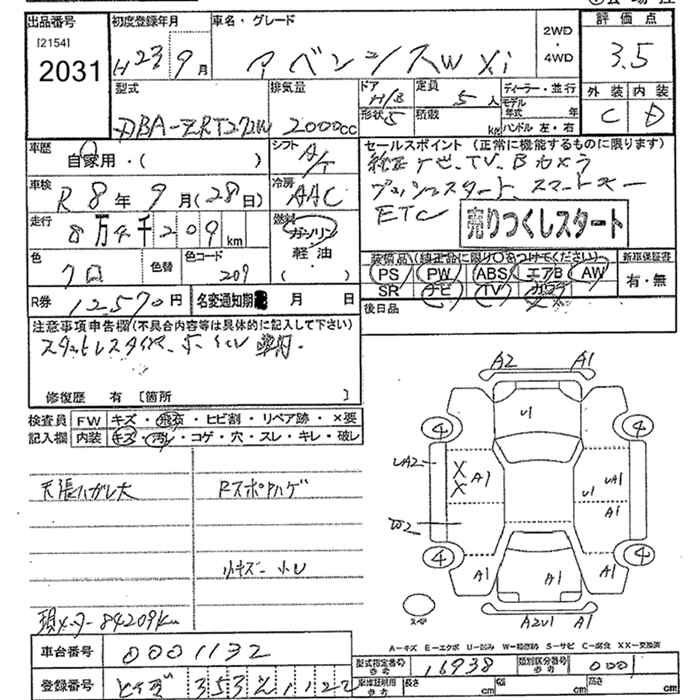 出品番号
[2154]
2031
初度登録年月
H23年9月
車名・グレード
アベンシスW Xi
2WD
・
4WD
評価点
3.5
型式
DBA-ZRT272W
排気量
2000cc
ドア
形状 5
定員
5人
積載
kg
ディーラー・並行
モデル年式 年
ハンドル 左・右
外装 内装
C D
車歴
自家用・( )
シフト
A/T
車検
R 8年 9月(28日)
冷房
AAC
走行
8万4千209km
燃料
ガソリン
軽油
( )
色
クロ
色替
色コード
209
R券
12570円
名変通知期限 月 日
セールスポイント(正常に機能するものに限ります)
純正ナビ、TV、Bカメラ
プッシュスタート、スマートキー
ETC
売りつくしスタート
装備品(純正品に限り○をつけてください)
新車保証書
PS PW ABS エアB AW
有・無
SR ナビ TV カワ
後日品
注意事項申告欄(不具合内容等は具体的に記入して下さい)
修復歴 有 [箇所 ]
検査員 FW キズ・飛石・ヒビ割・リペア跡・×要
記入欄 内装 キズ・汚レ・コゲ・穴・スレ・キレ・破レ
天張ハガレ大
Rスポハゲ
小キズ 小U
現メーター84209km
A2 A1
U1
4 4
UA2
X
X
A1
UA1
U1
A1
W2
4 4
A1
A1
A1
スペア
A2U1 A1
A-キズ E-エクボ U-凹み W-補修跡 S-サビ C-腐食 XX-交換済
車台番号 0001132
型式指定番号 参考 16938
類別区分番号 参考 0001
登録番号
車庫証明用 参考 長さ cm 幅 cm 高さ cm